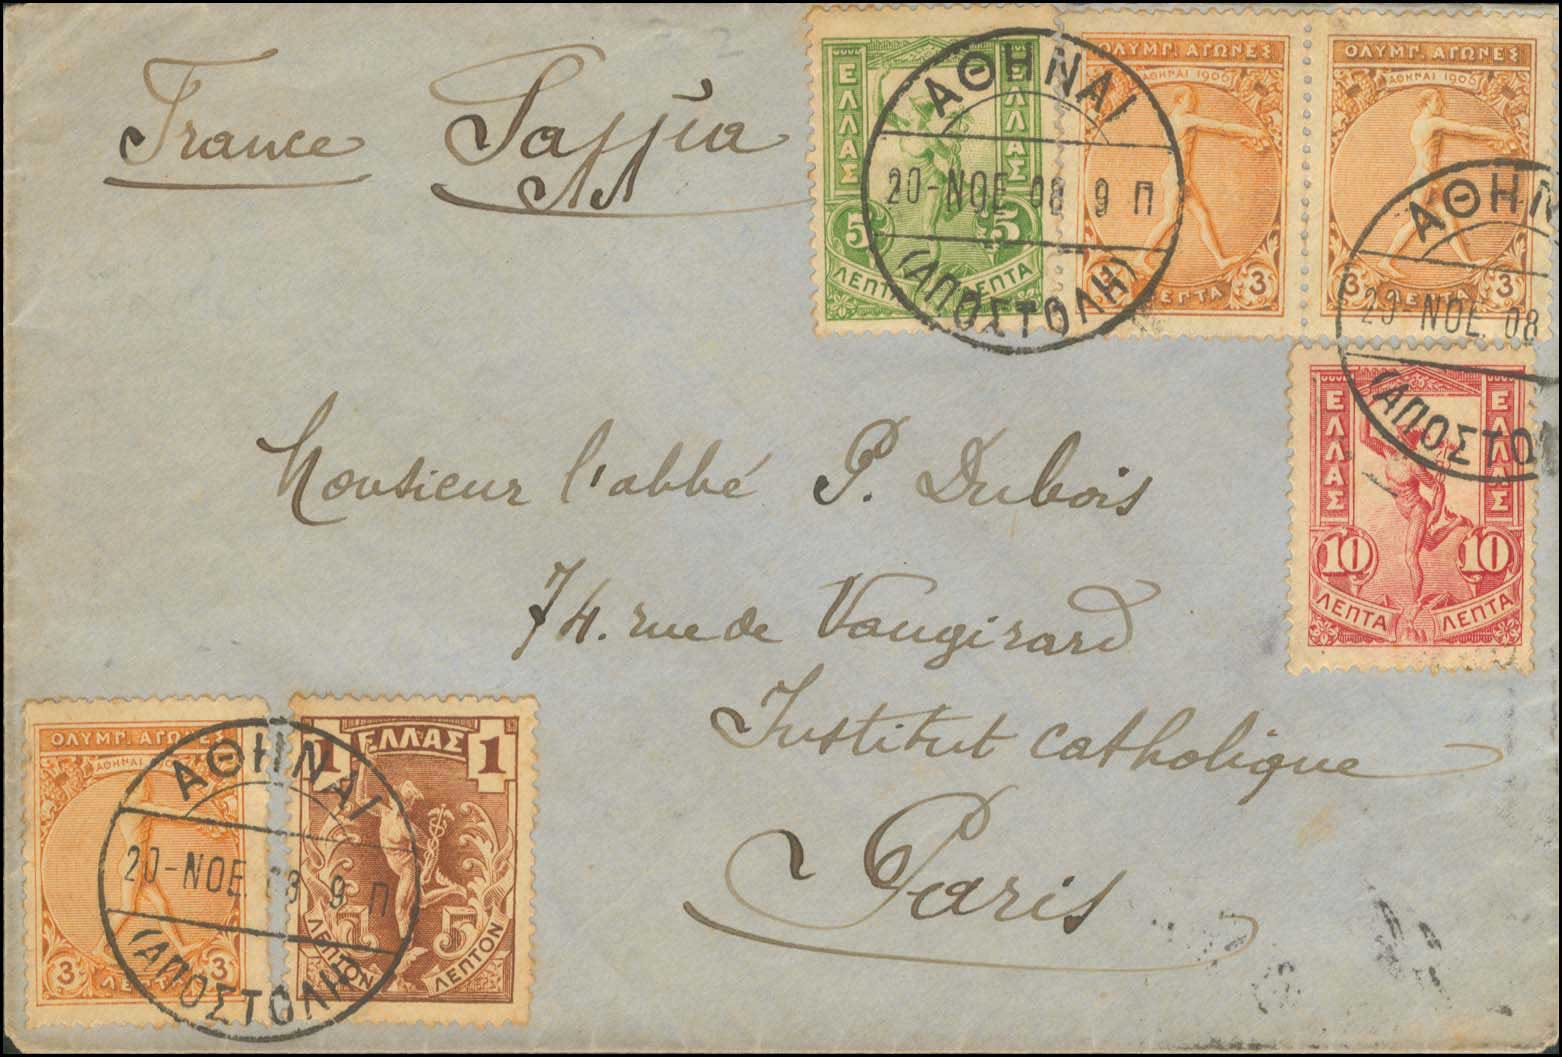 France Γαλλία
ΕΛΛΑΣ ΕΛΛΑΣ
5 5
ΛΕΠΤΑ ΛΕΠΤΑ
ΟΛΥΜΠ. ΑΓΩΝΕΣ
ΑΘΗΝΑΙ 1906
3 ΛΕΠΤΑ 3
ΟΛΥΜΠ. ΑΓΩΝΕΣ
ΑΘΗΝΑΙ 1906
3 ΛΕΠΤΑ 3
ΑΘΗΝΑΙ
20-ΝΟΕ 08 9 Π
(ΑΠΟΣΤΟΛΗ)
ΑΘΗΝ
20-ΝΟΕ. 08
(ΑΠΟΣΤΟ
ΕΛΛΑΣ ΕΛΛΑΣ
10 10
ΛΕΠΤΑ ΛΕΠΤΑ
Monsieur l'abbé P. Dubois
74. rue de Vaugirard
Institut catholique
Paris
ΟΛΥΜΠ. ΑΓΩΝΕΣ
ΑΘΗΝΑΙ
3 ΛΕΠΤΑ 3
1 ΕΛΛΑΣ 1
ΛΕΠΤΟΝ ΛΕΠΤΟΝ
ΑΘΗΝΑΙ
20-ΝΟΕ. 08 9 Π
(ΑΠΟΣΤΟΛΗ)